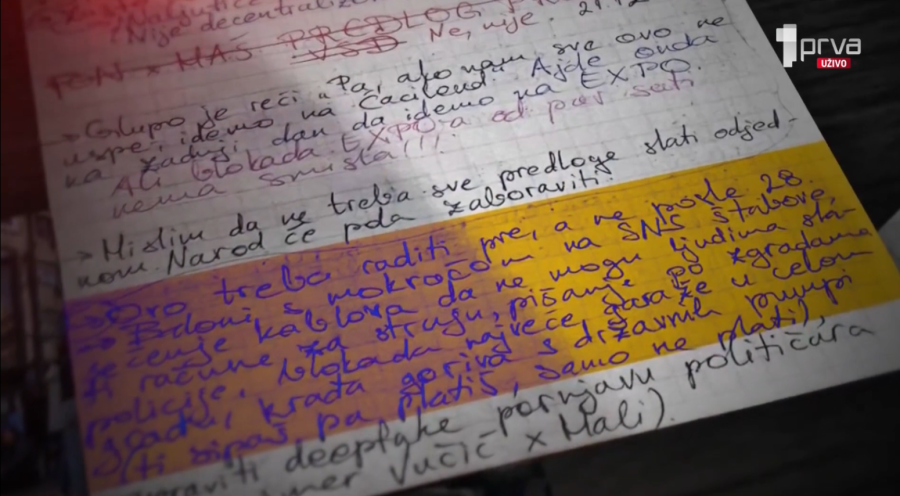 Nije decentraliz
PLAN x NAŠ PREDLOG
VSD Ne, nije. 21.12
1 prva
UŽIVO
→ Glupo je reći „Pa, ako nam sve ovo ne
uspe, idemo na Ćacilend. Ajde onda
za zadnji dan da idemo na EXPO.
Ali blokada EXPO-a od par sati
nema smisla!!!
→ Mislim da ne treba sve predloge slati odjed-
nom. Narod će pola zaboraviti.
→ Ovo treba raditi pre, a ne posle 28.
→ Baloni s mokraćom na SNS štabove,
sečenje kablova da ne mogu ljudima sla-
ti račune za struju, pišanje po zgradama
policije, blokada najveće garaže u celom
gradu, krađa goriva s državnih pumpi
(ti sipaš, pa platiš, samo ne plati),
deepfake pornjavu političara
Vučić x Mali).